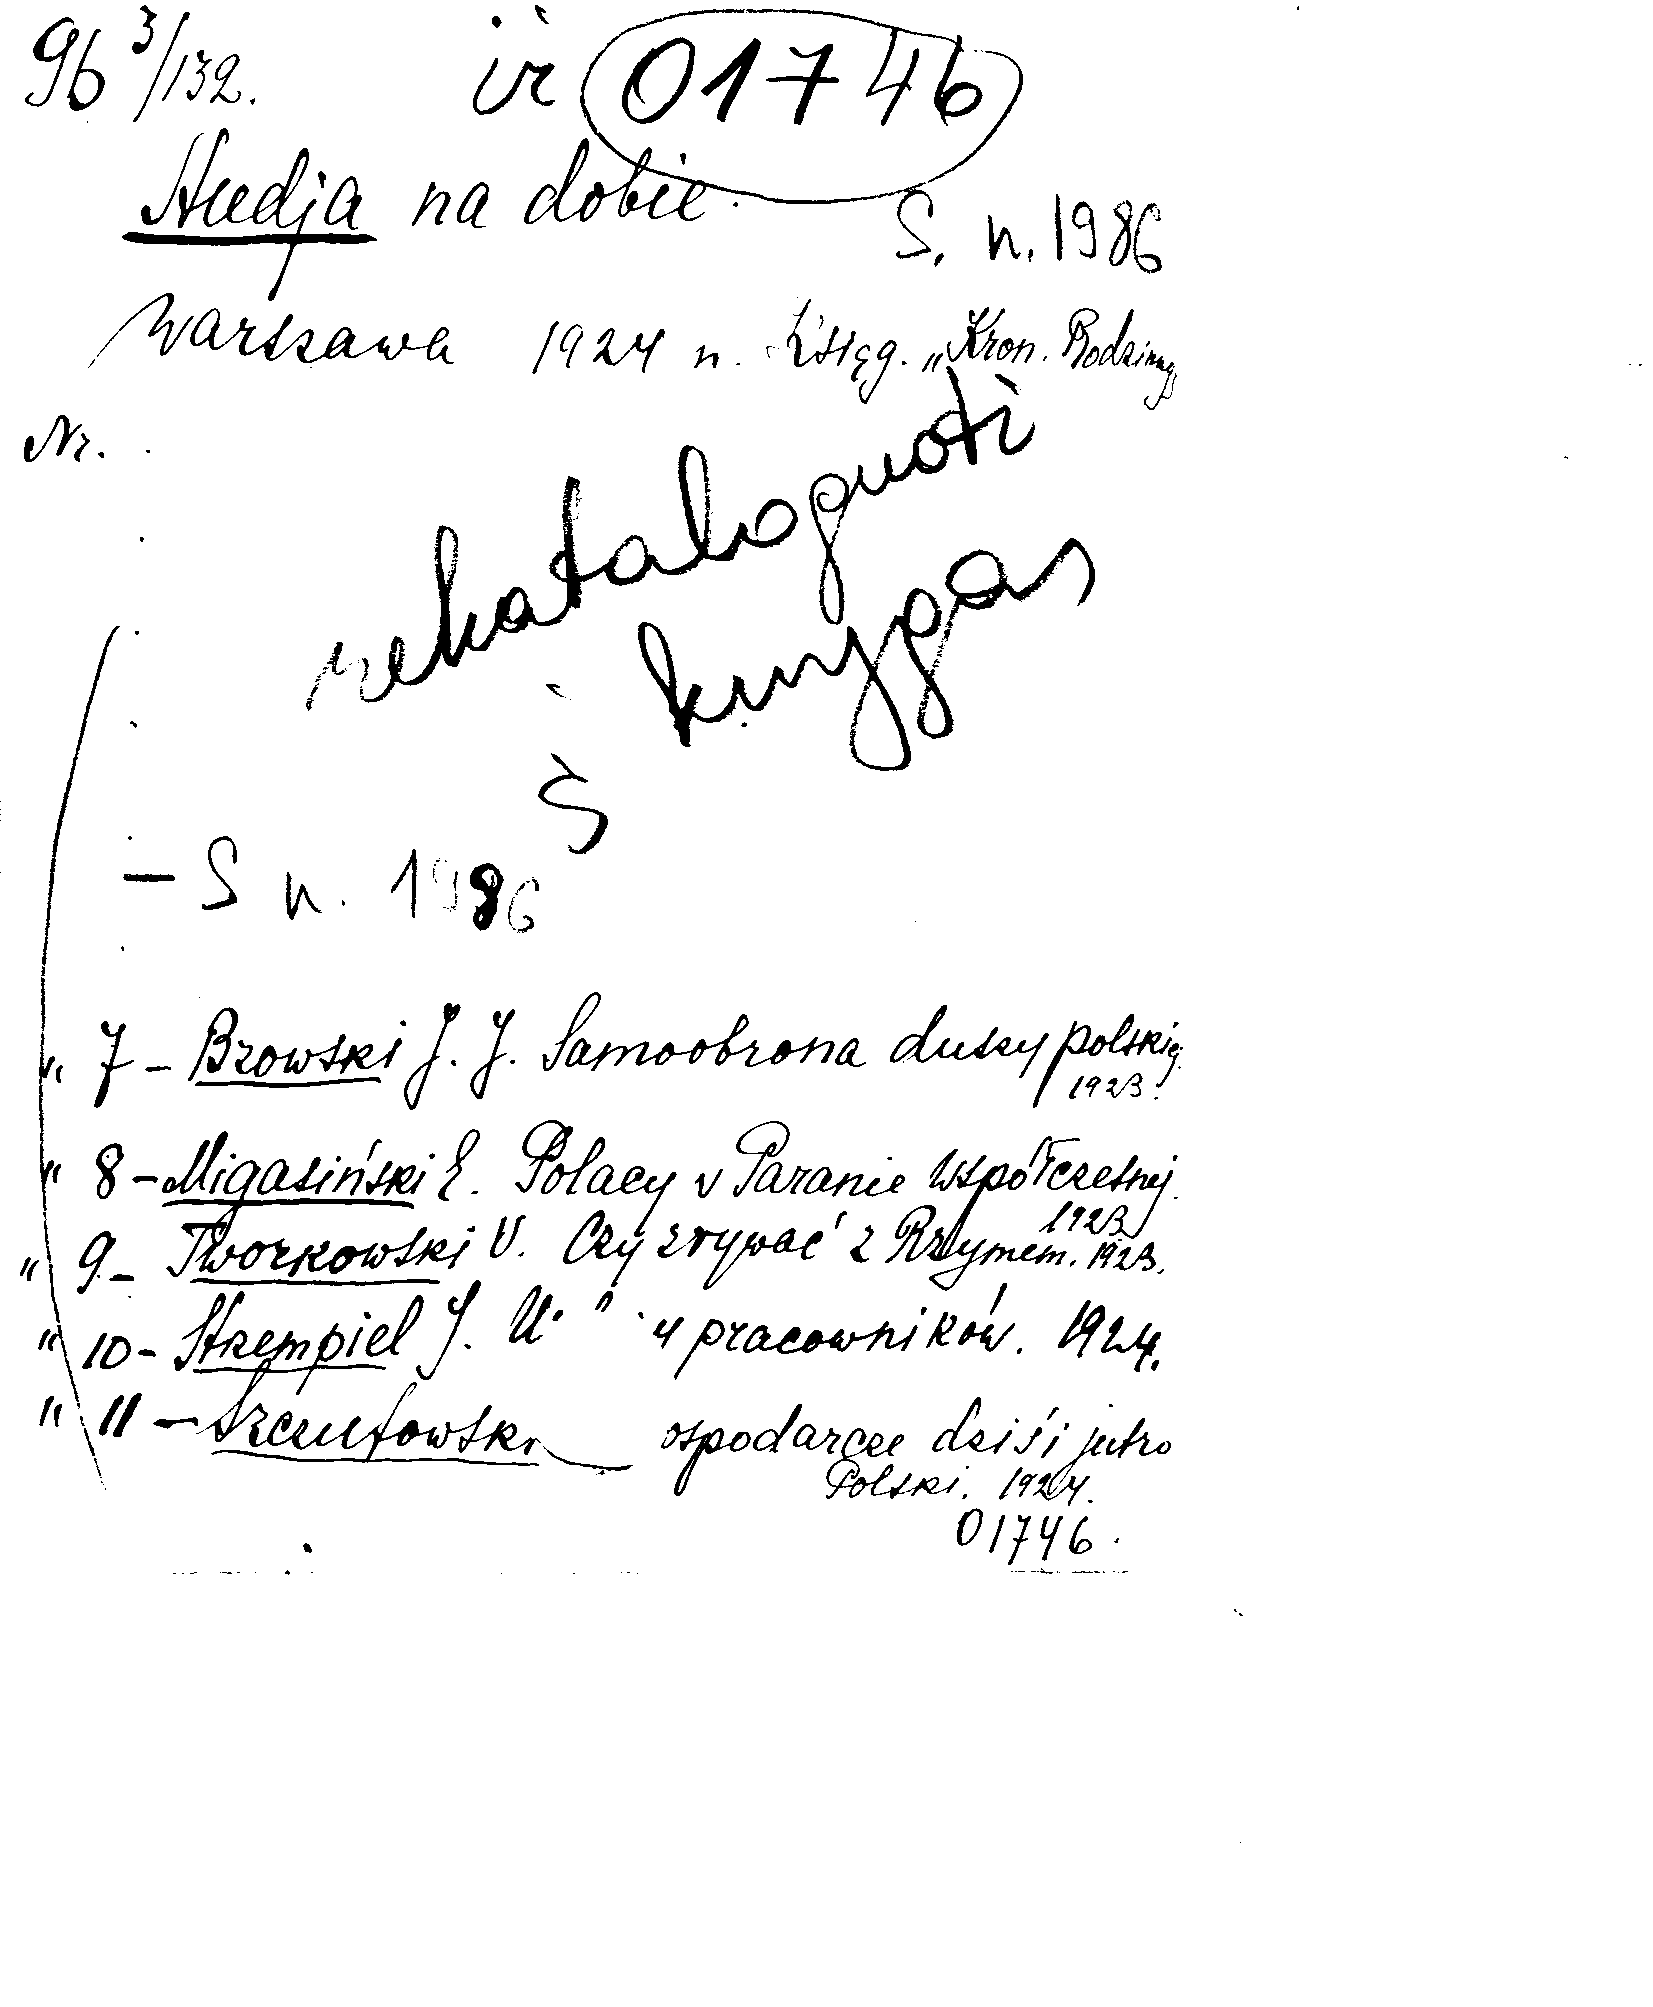 96 3/132. ir 01746
Studja na dobie.
S. n. 1986
Warszawa 1924 n. Księg. „Kron. Rodzinnej
Nr.
rekataloguoti
š knygas
— S n. 1986
" 7 – Brzowski J. J. Samoobrona duszy polskiej
1923.
" 8 – Migasiński E. Polacy v Paranie Współczesnej.
1923
" 9 – Tworkowski V. Czy zrywać z Rzymem. 1923.
" 10 – Strempiel J. U pracowników. 1924.
" 11 – ospodarcze dziś i jutro
Polski. 1924.
01746.